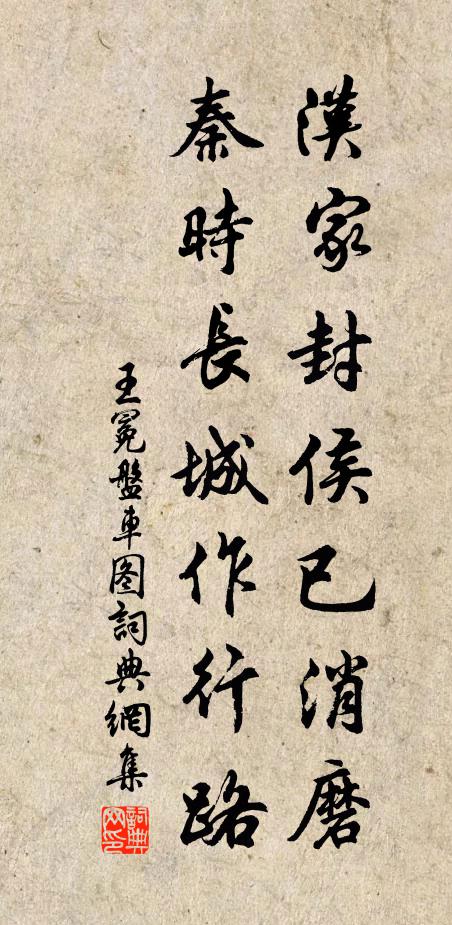 漢家封侯已消磨
秦時長城作行路
王冕盤車图詞典網集
詞典网印